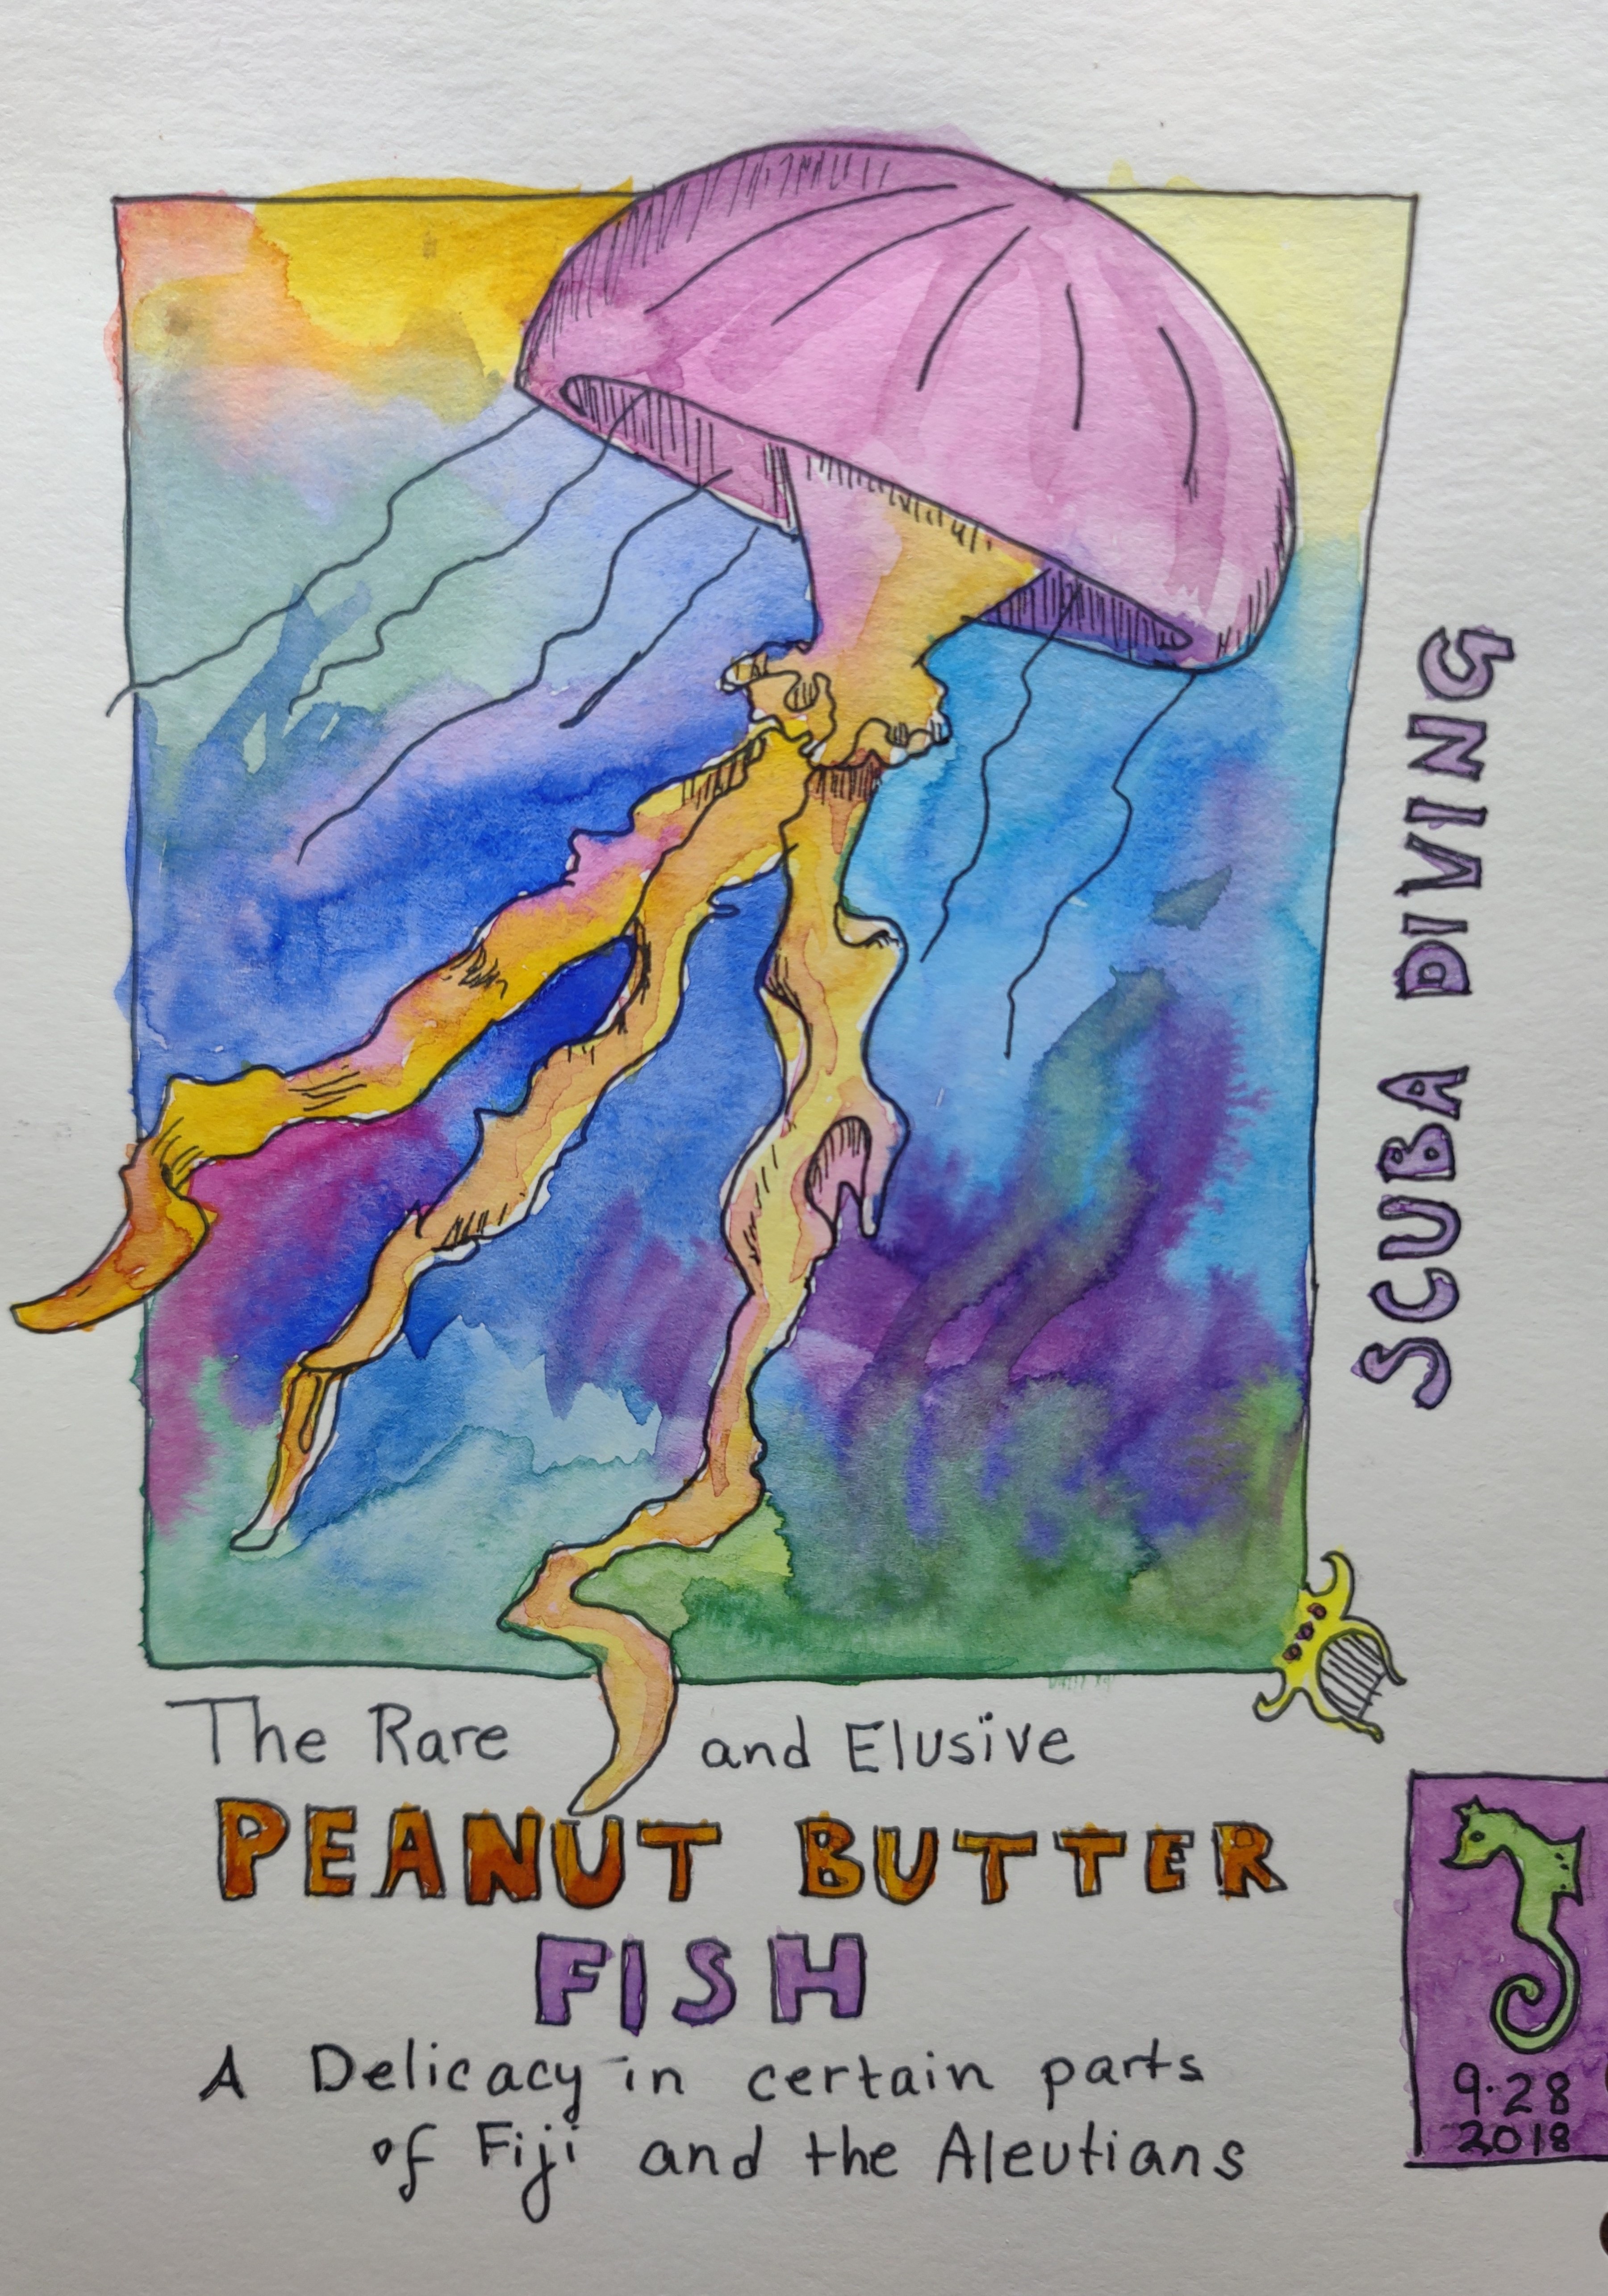 SCUBA DIVING
The Rare and Elusive
PEANUT BUTTER
FISH
A Delicacy in certain parts
of Fiji and the Aleutians
9.28
2018